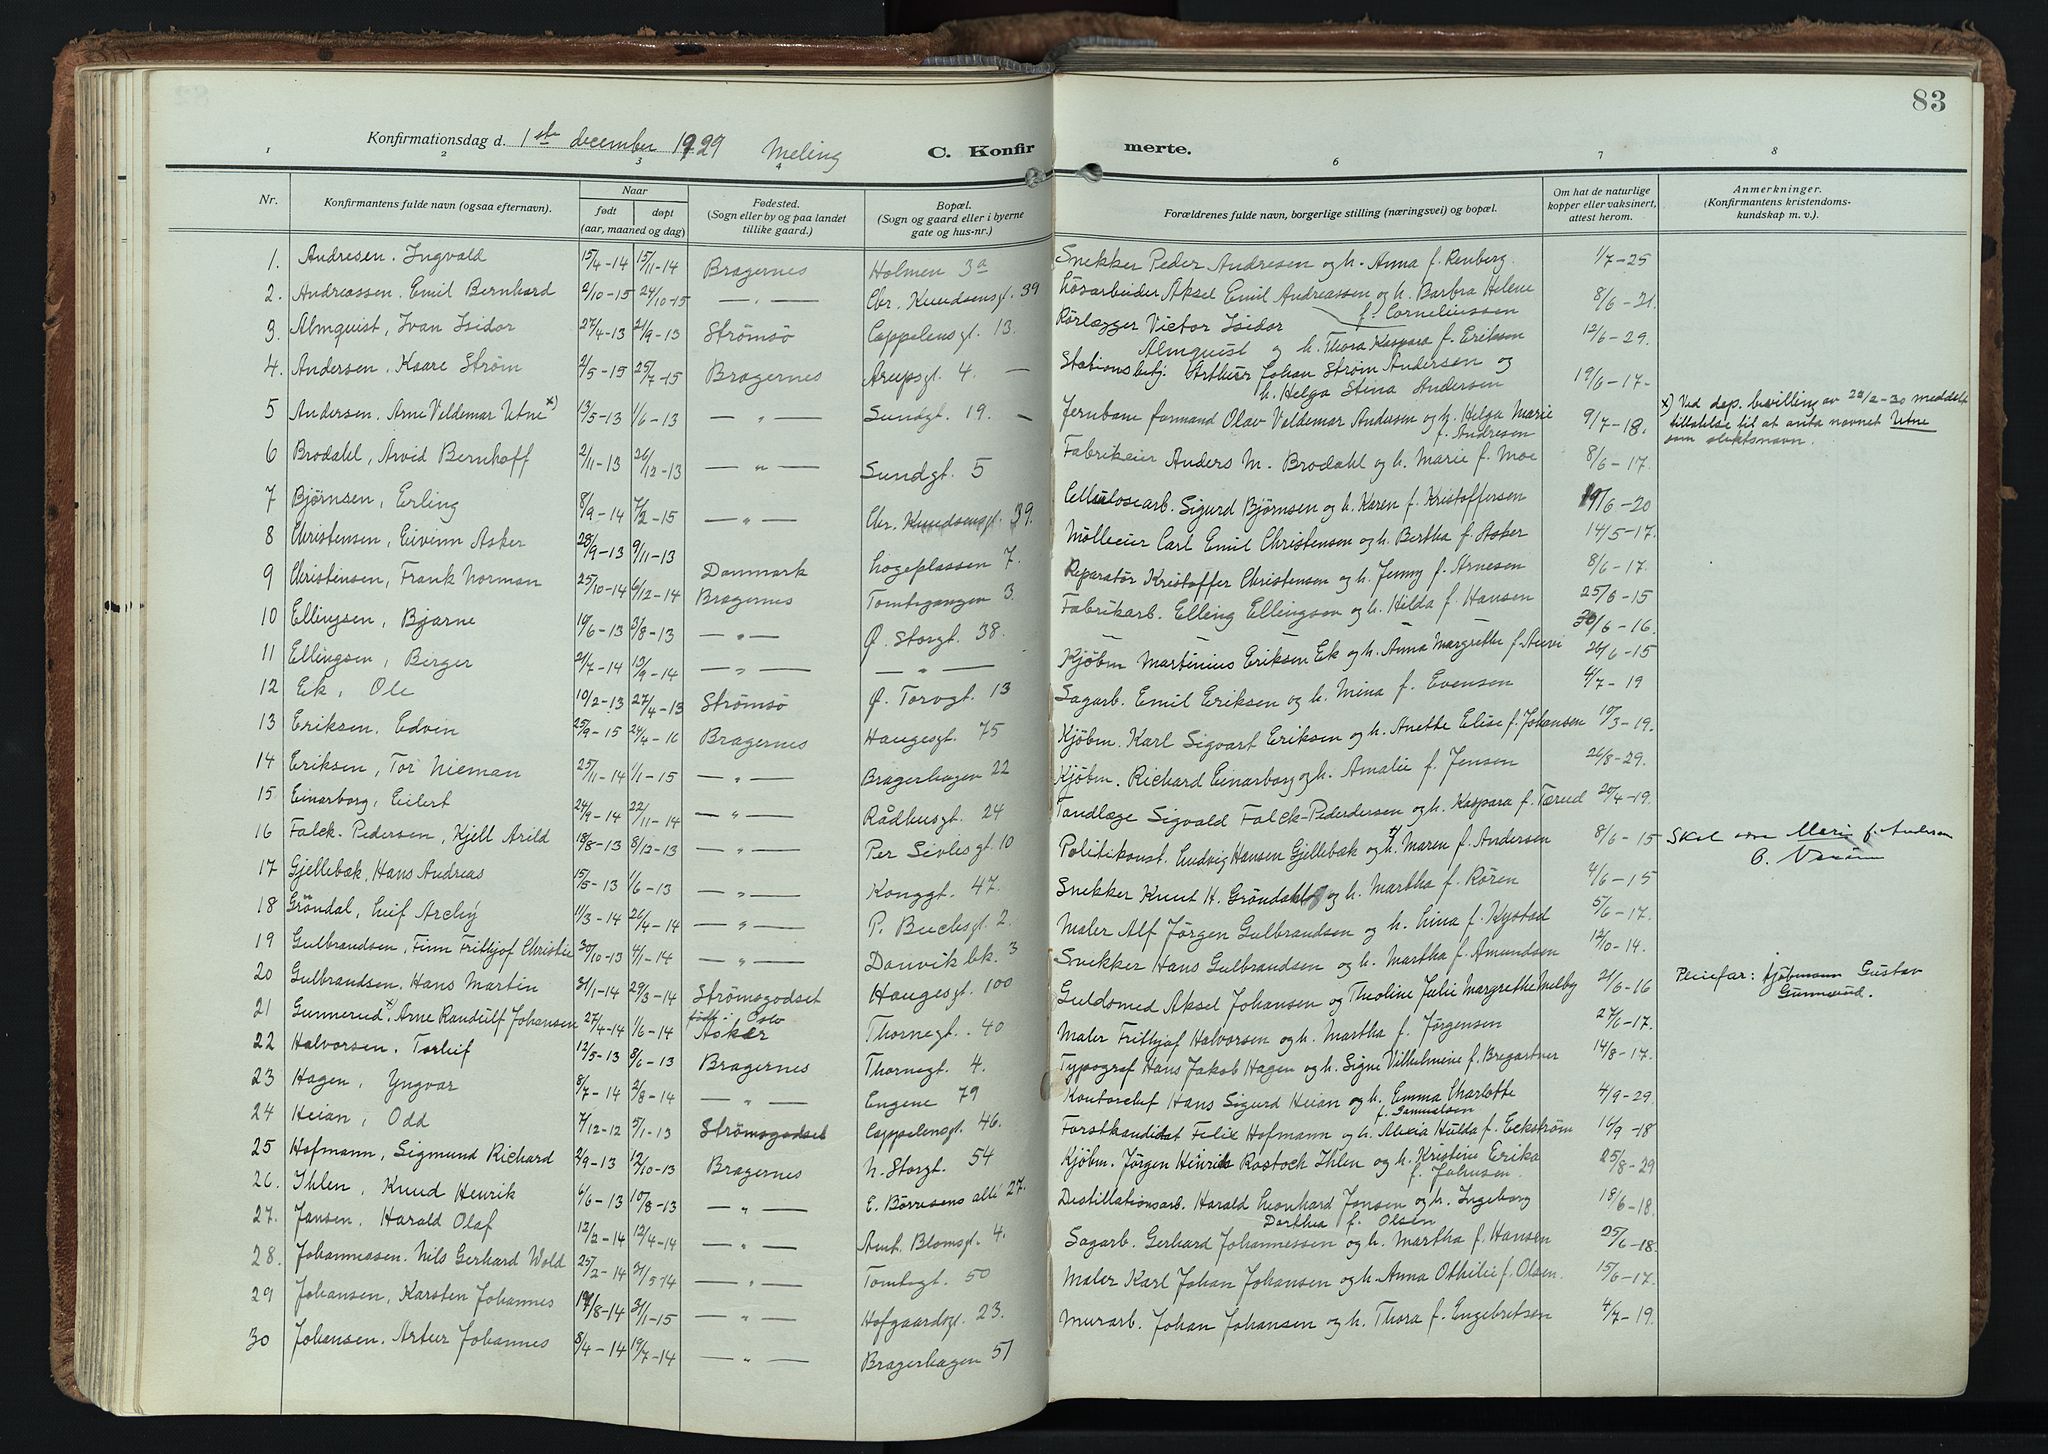 83
Konfirmationsdag d. 1ste december 1929 Meling
C. Konfirmerte.
1 2 3 4 6 7 8
Nr. Konfirmantens fulde navn (ogsaa efternavn). Naar født døpt (aar, maaned og dag) Fødested. (Sogn eller by og paa landet tillike gaard.) Bopæl. (Sogn og gaard eller i byerne gate og hus-nr.) Forældrenes fulde navn, borgerlige stilling (næringsvei) og bopæl. Om hat de naturlige kopper eller vaksinert, attest herom. Anmerkninger. (Konfirmantens kristendomskundskap m. v.).
1. Andresen. Ingvald 15/4-14 15/11-14 Bragernes Holmen 3a Snekker Peder Andresen og h. Anna f. Renberg. 1/7-25
2. Andreassen. Emil Bernhard 2/10-15 24/10-15 —"— Chr. Knudsensgt. 39 Løsarbeider Aksel Emil Andreassen og h. Barbra Helene f. Corneliussen 8/6-21.
3. Almquist, Ivan Isidor 27/4-13 21/9-13 Strømsö Cappelensgt. 13. Rörlægger Victor Isidor Almquist og h. Thora Kaspara f. Erikson 12/6-29.
4. Andersen. Kaare Strøm 2/5-15 25/7-15 Bragernes Arupsgt. 4. — Stationsbetj. Arthur Johan Strøm Andersen og h. Helga Stina Andersen 19/6-17.
5 Andersen. Arne Valdemar Utne x) 13/5-13 1/6-13 —"— Sundgt. 19. — Jernbane formand Olav Valdemar Andersen og h. Helga Marie f. Andresen 9/7-18. x) Ved dep. bevilling av 22/2-30 meddelt tillatelse til at anta navnet Utne som slektsnavn.
6 Brodahl, Arvid Bernhoff 2/11-13 26/12-13 —"— Sundgt. 5 Fabrikeier Anders M. Brodahl og h. Marie f. Moe 8/6-17.
7 Bjørnsen, Erling 8/9-14 7/2-15 —"— Chr. Knudsensgt. 39. Cellulosearb. Sigurd Bjørnsen og h. Karen f. Kristoffersen 19/6-20
8 Christensen, Eivinn Asker 28/9-13 9/11-13 Danmark Logeplassen 7. Mølleeier Carl Emil Christensen og h. Bertha f. Asker 14/5-17.
9 Christensen, Frank Norman 25/10-14 6/12-14 Bragernes Tomtegangen 3. Reparatör Kristoffer Christensen og h. Jenny f. Arnesen 8/6-17.
10 Ellingsen, Bjarne 19/6-13 3/8-13 —"— Ø. Storgt. 38. Fabrikarb. Elling Ellingsen og h. Hilda f. Hansen 25/6-15
11 Ellingsen, Berger 21/7-14 13/9-14 —"— —"— 30/6-16.
12 Ek, Ole 10/2-13 27/4-13 Strømsö Ø. Torvgt. 13 Kjöbm Martinius Eriksen Ek og h. Anna Margrethe f. 26/6-15
13 Eriksen. Edvin 25/9-15 24/4-16 Bragernes Haugesgt. 75 Sagarb. Emil Eriksen og h. Mina f. Evensen 4/7-19
14 Eriksen, Tor Nieman 25/11-14 1/1-15 —"— Bragerhagen 22 Kjøbm. Karl Sigvart Eriksen og h. Anette Elise f. Johansen 19/3-19.
15 Einarborg, Eilert 24/9-14 22/11-14 —"— Rådhusgt. 24 Kjøbm. Richard Einarborg og h. Amalie f. Jensen 26/8-29.
16 Falck-Pedersen, Kjell Arild 18/8-13 8/12-13 —"— Per Sivlesgt. 10 Tandlæge Sigvald Falck-Pederdersen og h. Kaspara f. Tærud 20/4-19.
17 Gjellebæk, Hans Andreas 15/5-13 1/6-13 —"— Konggt. 47. Politikonst. Ludvig Hansen Gjellebæk og h. x) Maren f. Andersen 8/6-15 Skal være Marie f. Andersen
18 Gröndal, Leif Archy 11/3-14 26/4-14 —"— P. Buchsgt. 2. Snekker Knut H. Gröndahl og h. Martha f. Røren 4/6-15
19 Gulbrandsen, Finn Frithjof Christie 30/10-13 4/1-14 —"— Danvikbk. 3 Maler Alf Jörgen Gulbrandsen og h. Lina f. Nystad 5/6-17.
20 Gulbrandsen. Hans Martin 31/1-14 29/3-14 Strömsgodset Haugesgt. 100 Snekker Hans Gulbrandsen og h. Martha f. Amundsen 12/10-14.
21 Gunnerud x). Arne Randulf Johansen 27/4-14 1/6-14 født i Oslo Asker Thornegt. 40 Guldsmed Aksel Johansen og Theoline Julie Margrethe Melby 21/6-16 Pleiefar: Kjøbmann Gustav Gunnerud.
22 Halvorsen. Torleif 12/5-13 8/6-13 Bragernes Thornegt. 4. Maler Frithjof Halvorsen og h. Martha f. Jørgensen 27/6-17.
23 Hagen, Yngvar 8/7-14 2/8-14 —"— Engene 79 Typograf Hans Jakob Hagen og h. Signe Vilhelmine f. Bregartner 14/8-17.
24 Heian, Odd 7/12-12 5/1-13 Strömsgodset Cappelensgt. 46. Kontorchef Hans Sigurd Heian og h. Emma Charlotte f. Samuelsen 4/9-29.
25 Hofmann, Sigmund Richard 2/9-13 12/10-13 Bragernes N. Storgt. 54 Forstkandidat Felix Hofmann og h. Alexia Hulda f. Eckström 16/9-18
26. Ihlen, Knud Henrik 6/6-13 10/8-13 —"— E. Børresens allé 27. Kjøbm. Jørgen Henrik Rostoch Ihlen og h. Kristine Erika f. Johnsen 25/8-29
27. Jansen. Harald Olaf 12/2-14 12/4-14 —"— Ant. Blomsgt. 4. Destillationsarb. Harald Leonhard Jansen og h. Ingeborg Dorthea f. Olsen 18/6-18.
28. Johannessen. Nils Gerhard Wold 25/2-14 31/5 14 —"— Tomtegt. 50 Sagarb. Gerhard Johannessen og h. Martha f. Hansen 25/6-18.
29 Johansen, Karsten Johannes 19/8-14 31/1-15 —"— Hofgaardsgt. 23. Maler Karl Johan Johansen og h. Anna Othilie f. Olsen. 15/6-17.
30 Johansen. Artur Johannes 8/4-14 19/7-14 —"— Bragerhagen 51 Murarb. Johan Johansen og h. Thora f. Engebretsen 4/7-19.